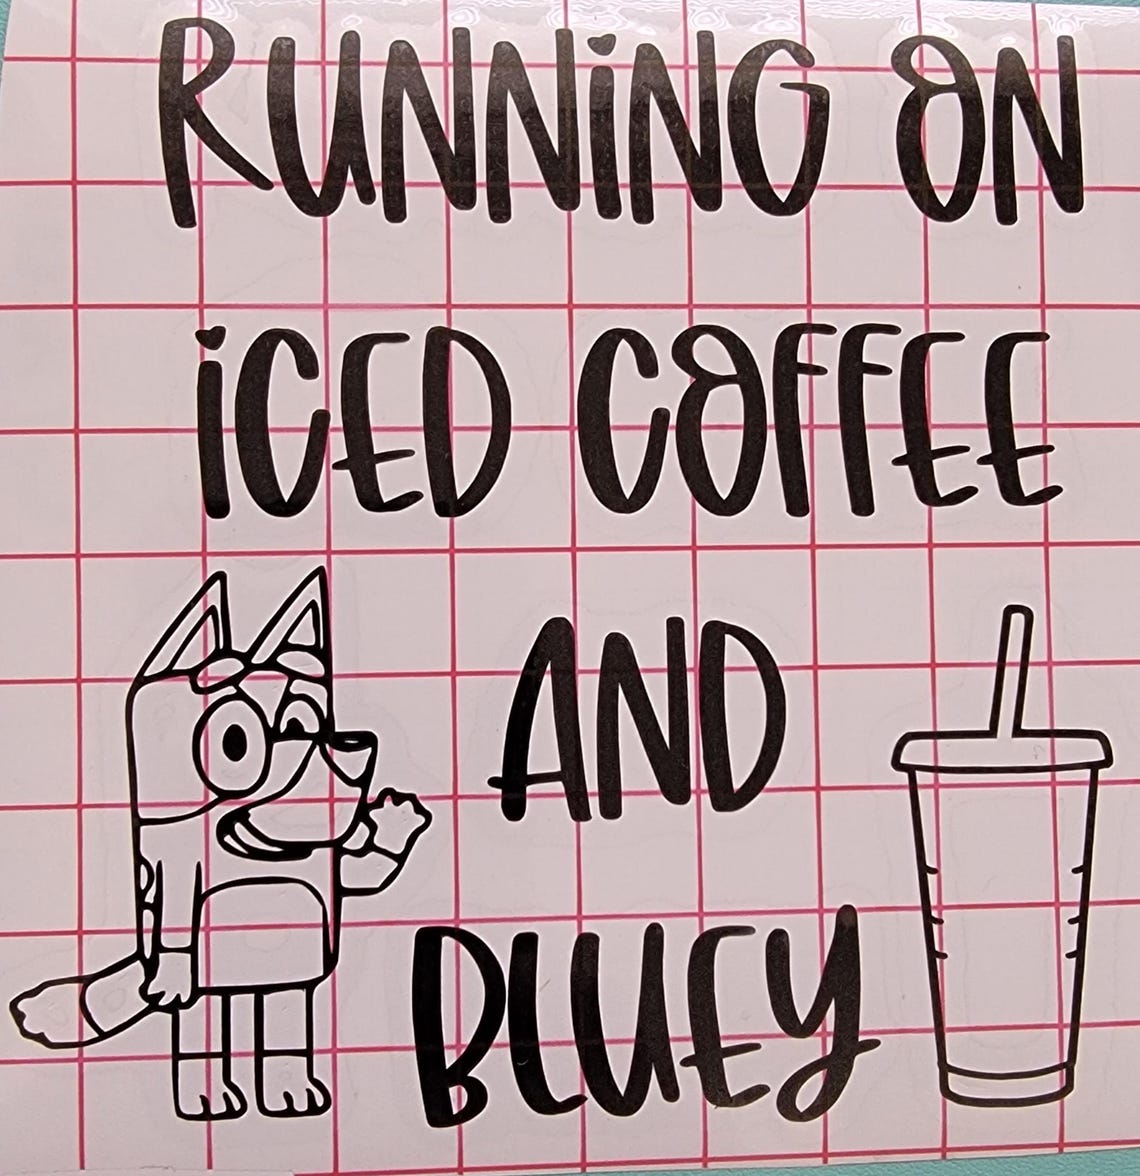 RUNNiNG ON
iCED COFFEE
AND
BLUEY